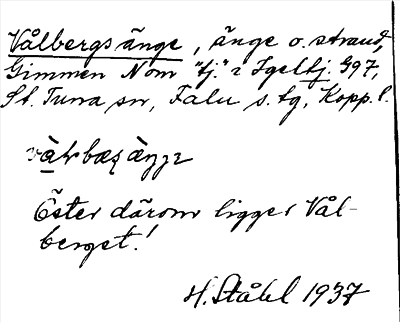 Vålbergsänge, änge o. strand,
Gimmen Nom "tj." i Igeltj. G97,
St. Tuna sn, Falu s. tg, Kopp. l.
Öster därom ligger Vål-
berget!
H. Ståhl 1937